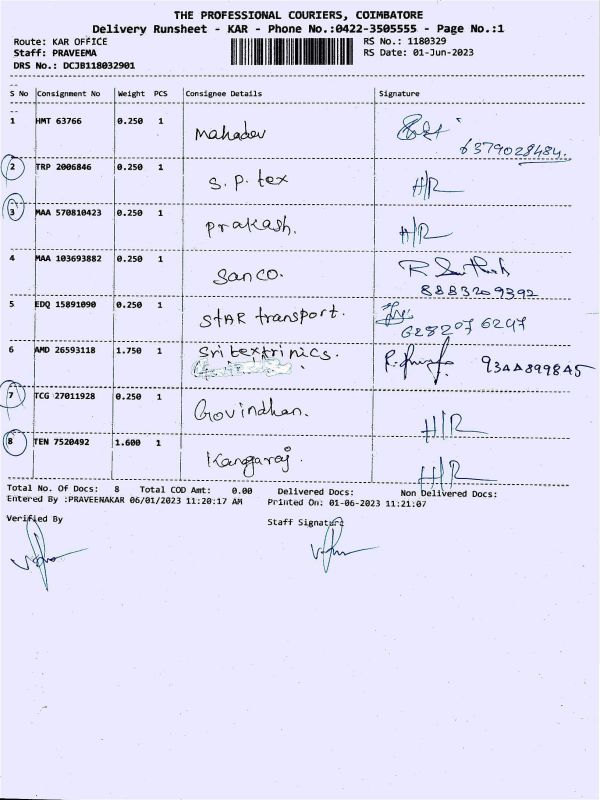 THE PROFESSIONAL COURIERS, COIMBATORE
Delivery Runsheet - KAR - Phone No.:0422-3505555 - Page No.:1
Route: KAR OFFICE RS No.: 1180329
Staff: PRAVEEMA RS Date: 01-Jun-2023
DRS No.: DCJB118032901
S No Consignment No Weight PCS Consignee Details Signature
1 HMT 63766 0.250 1 Mahadev
6379028484.
2 TRP 2006846 0.250 1 S.P. tex H/R
3 MAA 570810423 0.250 1 Prakash. H/R
4 MAA 103693882 0.250 1 Sanco.
8883209392
5 EDQ 15891090 0.250 1 StAR transport.
628207 6247
6 AMD 26593118 1.750 1 Sritextrinics. 9344899845
7 TCG 27011928 0.250 1 Govindhan. H/R
8 TEN 7520492 1.600 1 Kangaraj. H/R
Total No. Of Docs: 8 Total COD Amt: 0.00 Delivered Docs: Non Delivered Docs:
Entered By :PRAVEENAKAR 06/01/2023 11:20:17 AM Printed On: 01-06-2023 11:21:07
Verified By Staff Signature